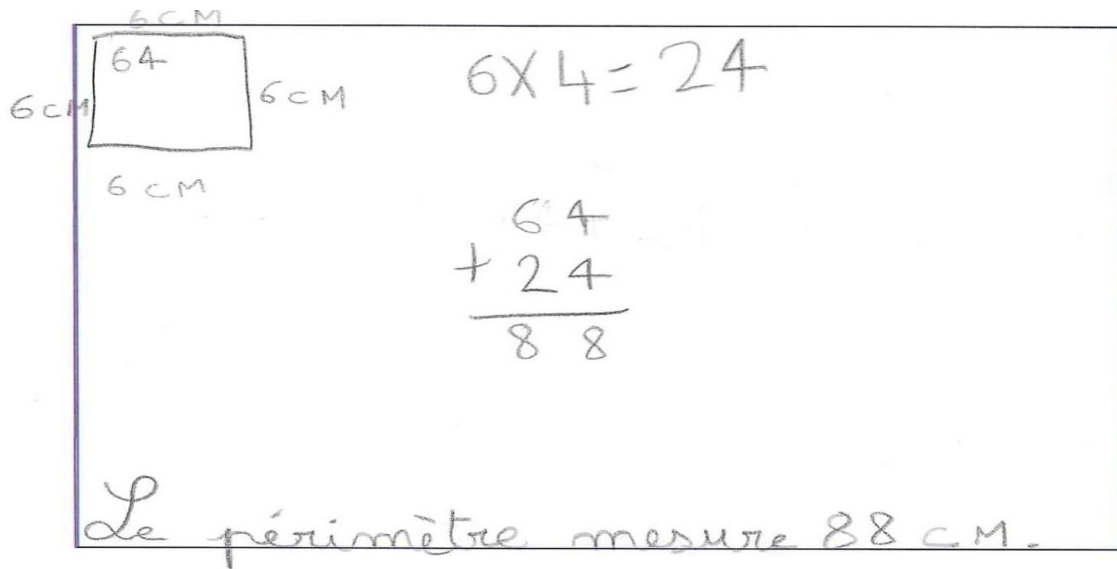 6 CM
64
6 × 4 = 24
6 CM
6 CM
6 CM
64
+ 24
88
Le périmètre mesure 88 CM.